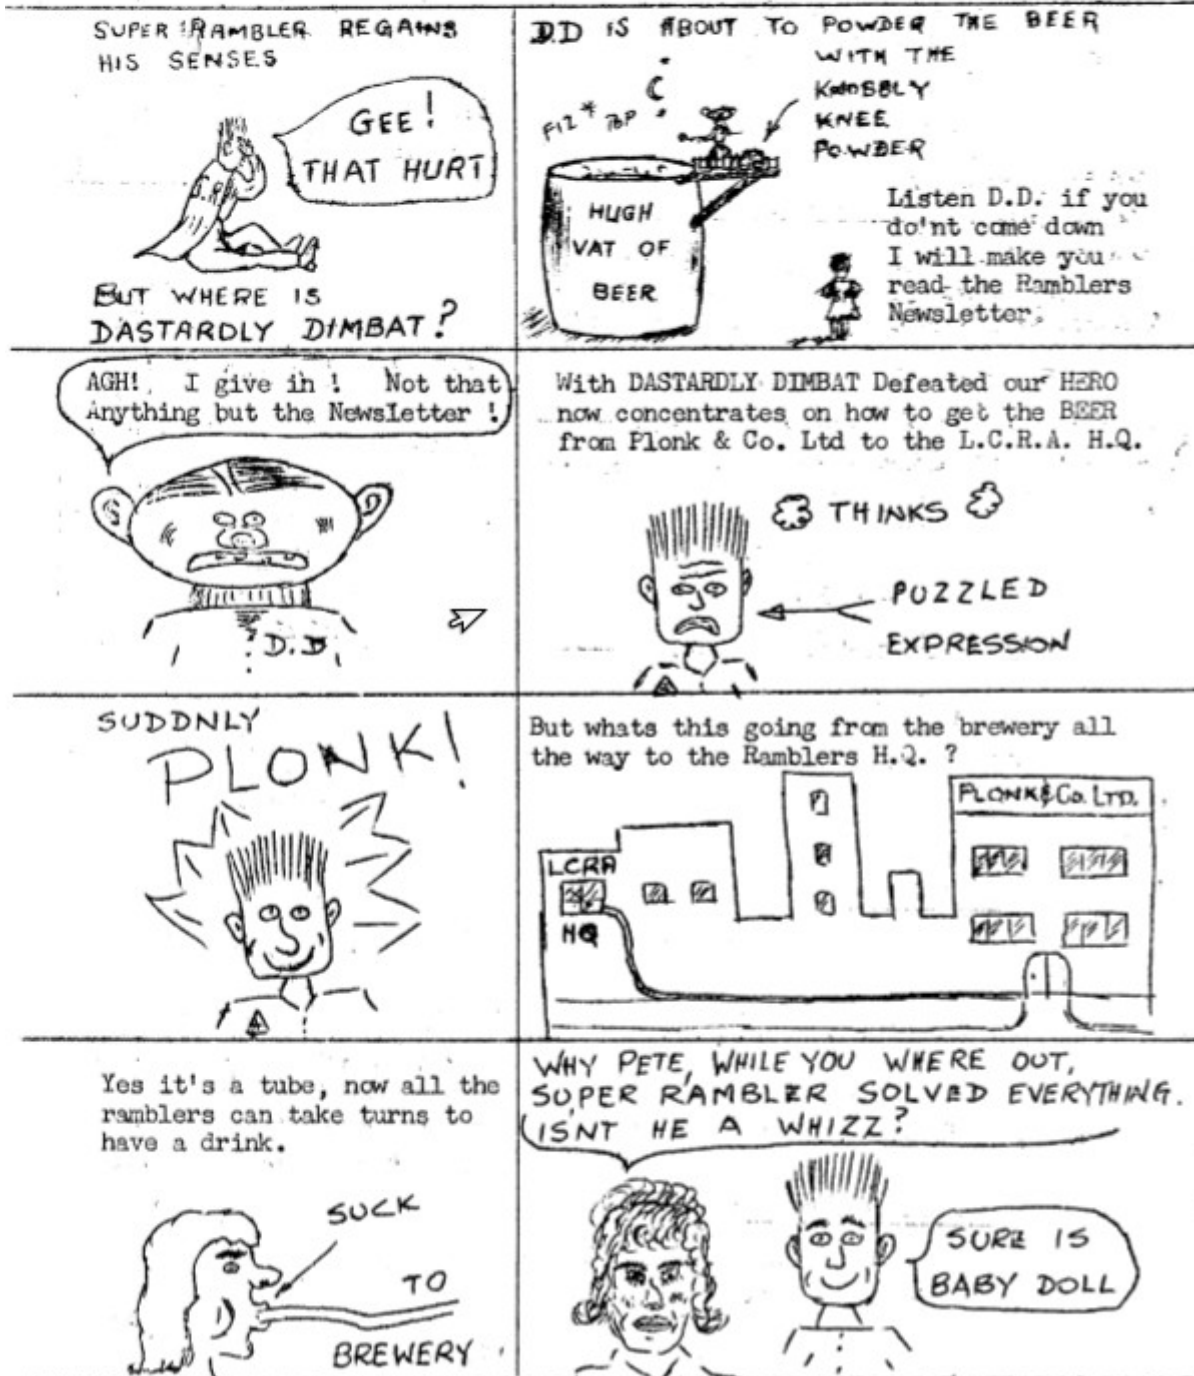 SUPER RAMBLER REGAINS
HIS SENSES
GEE!
THAT HURT
S.R.
BUT WHERE IS
DASTARDLY DIMBAT?
D.D IS ABOUT TO POWDER THE BEER
WITH THE
KNOBBLY
KNEE
POWDER
FIZ * POP
HUGH
VAT OF
BEER
Listen D.D. if you
do'nt come down
I will make you
read the Ramblers
Newsletter.
AGH! I give in ! Not that
Anything but the Newsletter !
D.D
With DASTARDLY DIMBAT Defeated our HERO
now concentrates on how to get the BEER
from Plonk & Co. Ltd to the L.C.R.A. H.Q.
THINKS
PUZZLED
EXPRESSION
SUDDNLY
PLONK!
But whats this going from the brewery all
the way to the Ramblers H.Q. ?
PLONK & Co. LTD.
LCRA
HQ
Yes it's a tube, now all the
ramblers can take turns to
have a drink.
SUCK
TO
BREWERY
WHY PETE, WHILE YOU WHERE OUT,
SUPER RAMBLER SOLVED EVERYTHING.
ISNT HE A WHIZZ?
SURE IS
BABY DOLL